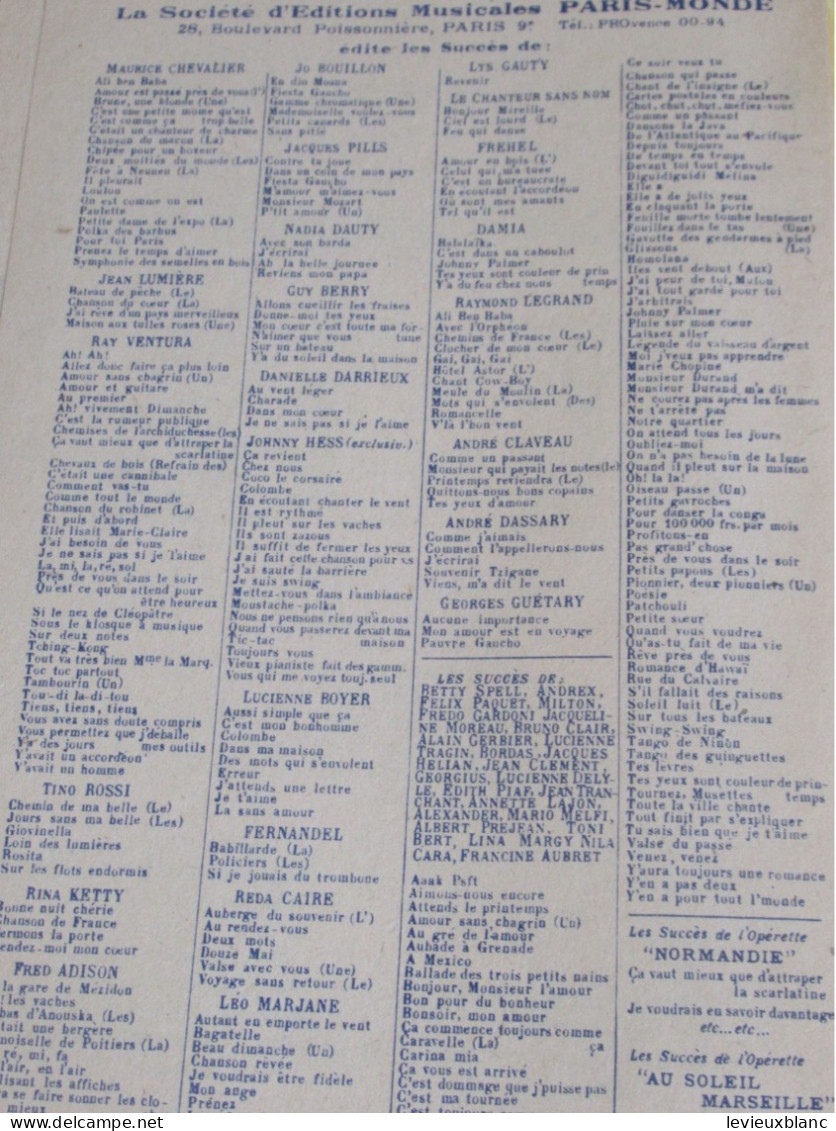 La Société d'Editions Musicales PARIS-MONDE
28, Boulevard Poissonnière, PARIS 9e Tél.: PROvence 00-94
édite les Succès de:
MAURICE CHEVALIER
Ali ben Baba
Amour est passé près de vous (l')
Brune, une blonde (Une)
C'est une petite mome qu'est
C'est comme ça trop belle
C'était un chanteur de charme
Chanson du maçon (La)
Chipée pour un boxeur
Deux moitiés du monde (Les)
Fête à Neuneu (La)
Il pleurait
Loulou
On est comme on est
Paulette
Petite dame de l'expo (La)
Polka des barbus
Pour toi Paris
Prenez le temps d'aimer
Symphonie des semelles en bois
JEAN LUMIÈRE
Bateau de pêche (Le)
Chanson du cœur (La)
J'ai rêvé d'un pays merveilleux
Maison aux tuiles roses (Une)
RAY VENTURA
Ah! Ah!
Allez donc faire ça plus loin
Amour sans chagrin (Un)
Amour et guitare
Au premier
Ah! vivement Dimanche
C'est la rumeur publique
Chemises de l'archiduchesse (les)
Ça vaut mieux que d'attraper la
scarlatine
Chevaux de bois (Refrain des)
C'était une cannibale
Comment vas-tu
Comme tout le monde
Chanson du robinet (La)
Et puis d'abord
Elle lisait Marie-Claire
J'ai besoin de vous
Je ne sais pas si je t'aime
La, mi, la, ré, sol
Près de vous dans le soir
Qu'est ce qu'on attend pour
être heureux
Si le nez de Cléopâtre
Sous le kiosque à musique
Sur deux notes
Tching-Kong
Tout va très bien Mme la Marq.
Toc toc partout
Tambourin (Un)
Tou-di la-di-tou
Tiens, tiens, tiens
Vous avez sans doute compris
Vous permettez que j'déballe
Y'a des jours mes outils
Y'avait un accordéon
Y'avait un homme
TINO ROSSI
Chemin de ma belle (Le)
Jours sans ma belle (Les)
Giovinella
Loin des lumières
Rosita
Sur les flots endormis
RINA KETTY
Bonne nuit chérie
Chanson de France
Fermons la porte
Rendez-moi mon cœur
FRED ADISON
la gare de Mézidon
les vaches
bas d'Anouska (Les)
tait une bergère
moiselle de Poitiers (La)
ré, mi, fa
l'air, en l'air
lisant les affiches
a se faire sonner les clo-
mieux
JO BOUILLON
En din Moana
Fiesta Gaucho
Gamme chromatique (Une)
Mademoiselle voulez-vous
Petits canards (Les)
Sans pitié
JACQUES PILLS
Contre ta joue
Dans un coin de mon pays
Fiesta Gaucho
M'amour m'aimez-vous
Monsieur Mozart
P'tit amour (Un)
NADIA DAUTY
Avec son barda
J'écrirai
Ah la belle journée
Reviens mon papa
GUY BERRY
Allons cueillir les fraises
Donne-moi tes yeux
Mon cœur c'est toute ma for-
N'aimer que vous tune
Sur un bateau
Y'a du soleil dans la maison
DANIELLE DARRIEUX
Au vent léger
Charade
Dans mon cœur
Je ne sais pas si je t'aime
JOHNNY HESS (exclusiv.)
Ça revient
Chez nous
Coco le corsaire
Colombe
En écoutant chanter le vent
Il est rythmé
Il pleut sur les vaches
Ils sont zazous
Il suffit de fermer les yeux
J'ai fait celle chanson pour vs
J'ai sauté la barrière
Je suis swing
Mettez-vous dans l'ambiance
Moustache-polka
Nous ne pensons rien qu'à nous
Quand vous passerez devant ma
Tic-tac maison
Toujours vous
Vieux pianiste fait des gamm.
Vous qui me voyez touj. seul
LUCIENNE BOYER
Aussi simple que ça
C'est mon bonhomme
Colombe
Dans ma maison
Des mots qui s'envolent
Erreur
J'attends une lettre
Je t'aime
La sans amour
FERNANDEL
Babillarde (La)
Policiers (Les)
Si je jouais du trombone
REDA CAIRE
Auberge du souvenir (L')
Au rendez-vous
Deux mots
Douze Mai
Valse avec vous (Une)
Voyage sans retour (Le)
LÉO MARJANE
Autant en emporte le vent
Bagatelle
Beau dimanche (Un)
Chanson rêvée
Je voudrais être fidèle
Mon ange
Prénez
LYS GAUTY
Revenir
LE CHANTEUR SANS NOM
Bonjour Mireille
Ciel est lourd (Le)
Feu qui danse
FREHEL
Amour en bois (L')
Celui qui m'a tuée
C'est un bureaucrate
En écoutant l'accordéon
Où sont mes amants
Tel qu'il est
DAMIA
Balalaïka
C'est dans un caboulot
Johnny Palmer
Tes yeux sont couleur de prin
Y'a du feu chez nous temps
RAYMOND LEGRAND
Ali Ben Baba
Avec l'Orphéon
Chemins de France (Les)
Clocher de mon cœur (Le)
Gai, Gai, Gai
Hôtel Astor (L')
Chant Cow-Boy
Meule du Moulin (La)
Mots qui s'envolent (Des)
Romancelle
V'là l'bon vent
ANDRÉ CLAVEAU
Comme un passant
Monsieur qui payait les notes (le)
Printemps reviendra (Le)
Quittons-nous bons copains
Tes yeux d'amour
ANDRÉ DASSARY
Comme j'aimais
Comment l'appellerons-nous
J'écrirai
Souvenir Tzigane
Viens, m'a dit le vent
GEORGES GUÉTARY
Aucune importance
Mon amour est en voyage
Pauvre Gaucho
LES SUCCÈS DE:
BETTY SPELL, ANDREX,
FELIX PAQUET, MILTON,
FREDO GARDONI JACQUELI-
NE MOREAU, BRUNO CLAIR,
ALAIN GERBIER, LUCIENNE
TRAGIN, BORDAS, JACQUES
HELIAN, JEAN CLEMENT,
GEORGIUS, LUCIENNE DELY-
LE, EDITH PIAF, JEAN TRAN-
CHANT, ANNETTE LAJON,
ALEXANDER, MARIO MELFI,
ALBERT PREJEAN, TONI
BERT, LINA MARGY NILA
CARA, FRANCINE AUBRET
Aaak Psft
Aimons-nous encore
Attends le printemps
Amour sans chagrin (Un)
Au gré de l'amour
Aubade à Grenade
A Mexico
Ballade des trois petits nains
Bonjour, Monsieur l'amour
Bon pour du bonheur
Bonsoir, mon amour
Ça commence toujours comme
Caravelle (La) ça
Carina mia
Ça vous est arrivé
C'est dommage que j'puisse pas
C'est ma tournée
C'est toujours
Ce soir veux tu
Chanson qui passe
Chant de l'insigne (Le)
Cartes postales en couleurs
Chut, chut, chut, méfiez-vous
Comme un passant
Dansons la Java
De l'Atlantique au Pacifique
Depuis toujours
De temps en temps
Devant toi tout s'envole
Diguidiguidi Mélina
Elle a
Elle a de jolis yeux
En claquant la porte
Feuille morte tombe lentement
Fouillez dans le tas (Une)
Gavotte des gendarmes à pied
Glissons (La)
Homolana
Iles vent debout (Aux)
J'ai peur de toi, Malou
J'ai tout gardé pour toi
J'arbitrais
Johnny Palmer
Pluie sur mon cœur
Laissez aller
Légende du vaisseau d'argent
Moi j'veux pas apprendre
Marie Chopine
Monsieur Durand
Monsieur Durand m'a dit
Ne courez pas après les femmes
Ne t'arrête pas
Notre quartier
On attend tous les jours
Oubliez-moi
On n'a pas besoin de la lune
Quand il pleut sur la maison
Oh! la la!
Oiseau passe (Un)
Petits gavroches
Pour danser la conga
Pour 100 000 frs. par mois
Profitons-en
Pas grand'chose
Près de vous dans le soir
Petits papous (Les)
Pionnier, deux pionniers (Un)
Poésie
Patchouli
Petite sœur
Quand vous voudrez
Qu'as-tu fait de ma vie
Rêve près de vous
Romance d'Hawaï
Rue du Calvaire
S'il fallait des raisons
Soleil luit (Le)
Sur tous les bateaux
Swing-Swing
Tango de Ninon
Tango des guinguettes
Tes lèvres
Tes yeux sont couleur de prin-
Tournez, Musettes temps
Toute la ville chante
Tout finit par s'expliquer
Tu sais bien que je t'aime
Valse du passé
Venez, venez
Y'aura toujours une romance
Y'en a pas deux
Y'en a pour tout l'monde
Les Succès de l'Opérette
"NORMANDIE"
Ça vaut mieux que d'attraper
la scarlatine
Je voudrais en savoir davantage
etc... etc...
Les Succès de l'Opérette
"AU SOLEIL
MARSEILLE"
delcampe.net
levieuxblanc